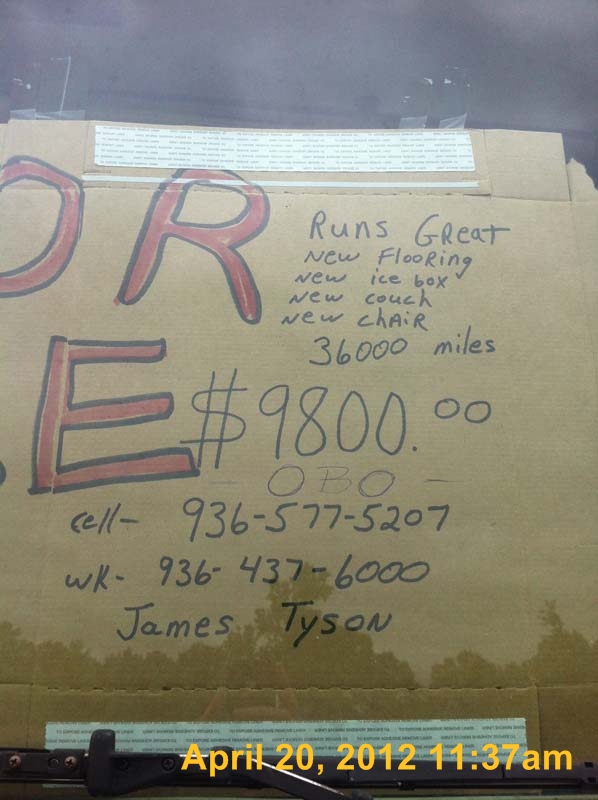 OR
Runs Great
New Flooring
New ice box
New couch
New chair
36000 miles
E $9800.00
- OBO -
cell- 936-577-5207
wk- 936-437-6000
James Tyson
April 20, 2012 11:37am